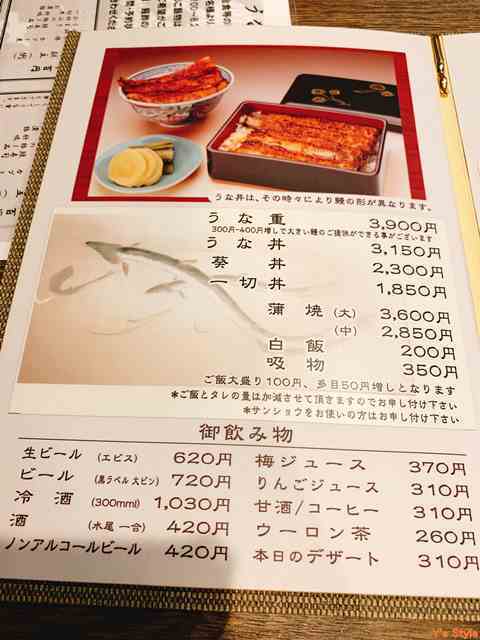 うな丼は、その時々により鰻の形が異なります。
うな重 3,900円
300円~400円増しで大きい鰻のご提供ができる事がございます
うな丼 3,150円
葵丼 2,300円
一切丼 1,850円
蒲焼(大) 3,600円
(中) 2,850円
白飯 200円
吸物 350円
ご飯大盛り100円、多目50円増しとなります
*ご飯とタレの量は加減させて頂きますのでお申し付け下さい
*サンショウをお使いの方はお申し付け下さい
御飲み物
生ビール (エビス) 620円
ビール (黒ラベル 大ビン) 720円
冷酒 (300mml) 1,030円
酒 (木尾 一合) 420円
ノンアルコールビール 420円
梅ジュース 370円
りんごジュース 310円
甘酒/コーヒー 310円
ウーロン茶 260円
本日のデザート 310円
Y's Style